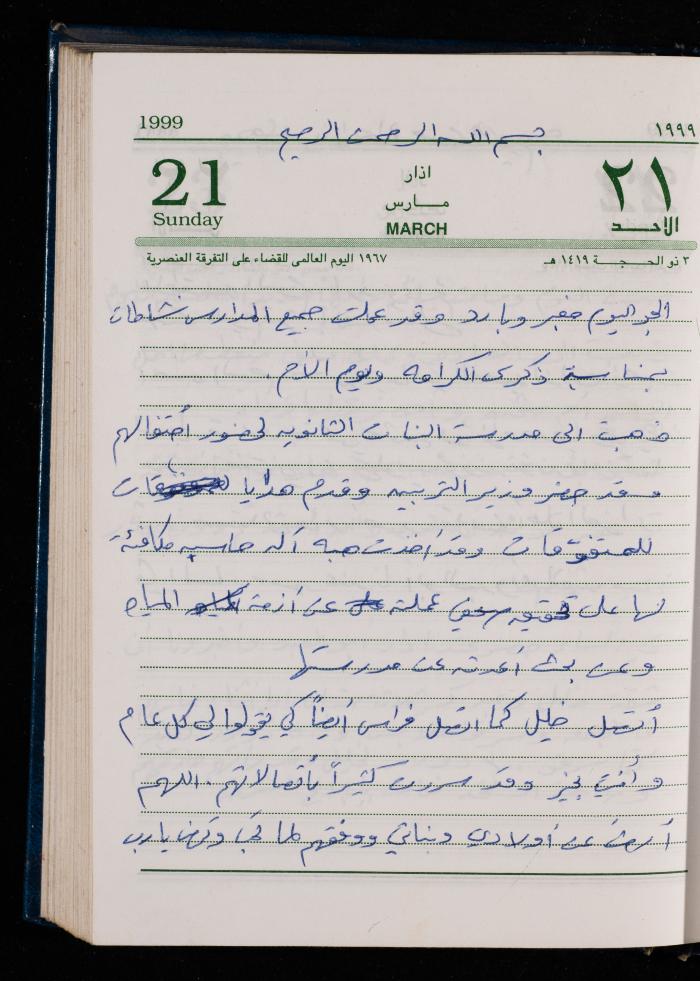 1999 ١٩٩٩
بسم الله الرحمن الرحيم
21 اذار ٢١
مارس
Sunday MARCH الاحد
١٩٦٧ اليوم العالمى للقضاء على التفرقة العنصرية ٣ ذو الحجة ١٤١٩ هـ
الجو اليوم مغبر وبارد وقد عملت جميع المدارس نشاطات
بمناسبة ذكرى الكرامه ويوم الأم.
ذهبت الى مدرسة البنات الثانويه لحضور أحتفالهم
وقد حضر وزير التربيه وقدم هدايا
للمتفوقات وقد أخذت هبه آله حاسبه مكافئة
لها على تحقيق صحفي عملته عن أزمة المياه
وعن بحث أعدته عن مدرستها
أتصل خليل كما اتصل فراس أيضاً كي يقولوا لي كل عام
و أنت بخير وقد سررت كثيراً بأتصالاتهم. اللهم
أرضى عن أولادي وبناتي ووفقهم لما تحب وترضى يارب